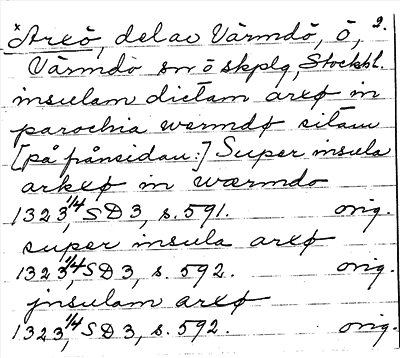 *Arxö, del av Värmdö, ö, 2.
Värmdö sn o skplg, Stockh.l.
insulam dictam arxø in
parochia wermdø sitam
[på frånsidan:] Super insula
arkxø in wærmdo
1323 1/4, SD 3, s. 591. orig.
super insula arxø
1323 1/4, SD 3, s. 592. orig.
jnsulam arxø
1323 1/4, SD 3, s. 592. orig.